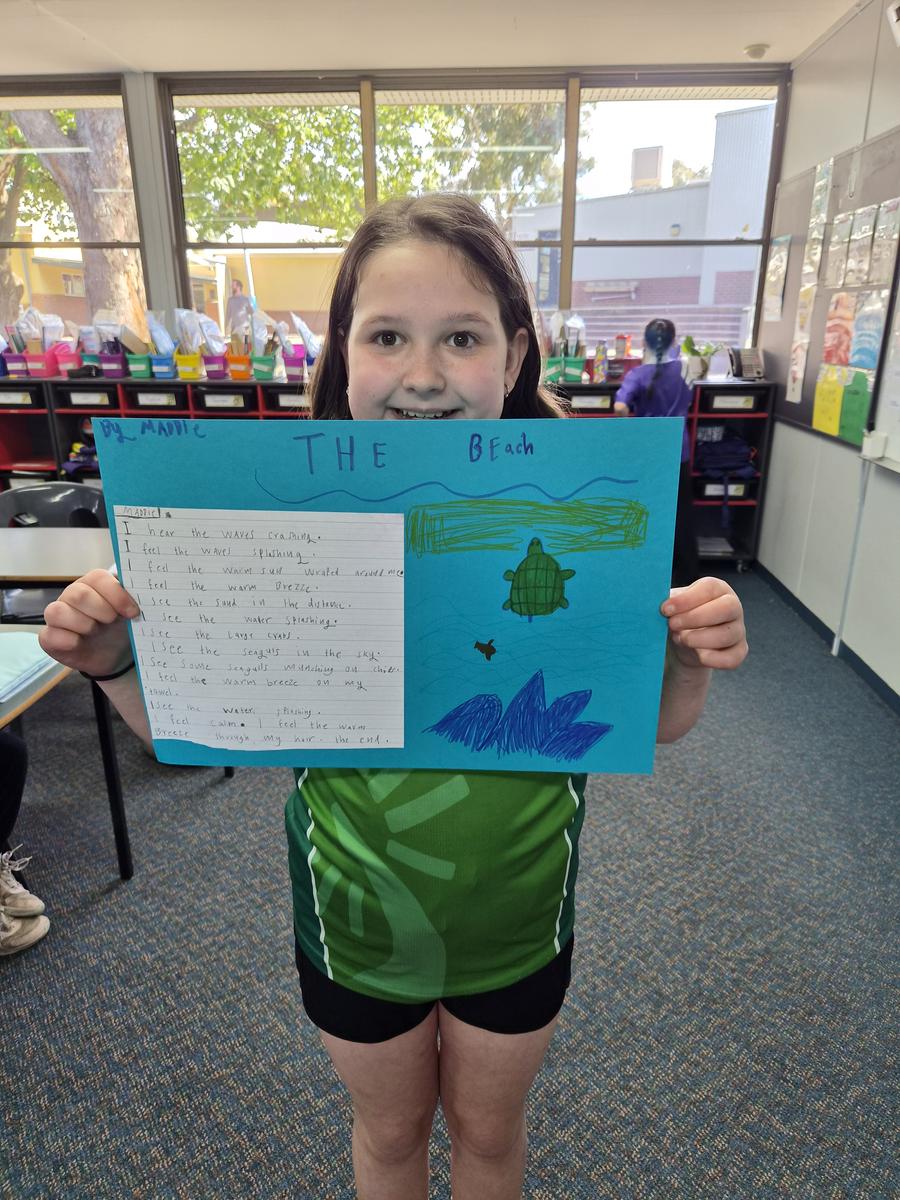 By MADDIE
THE BEach
MADDIE!
I hear the waves crashing.
I feel the waves splashing.
I feel the warm sun wrated around me.
I feel the warm Brezze.
I see the sand in the distance.
I see the water splashing.
I see the Large crabs.
I see the seaguls in the sky.
I see some seagulls munching on
I feel the warm breeze on my
towel.
I see the water splashing.
I feel calm. I feel the warm
Breeze through my hair. the end.